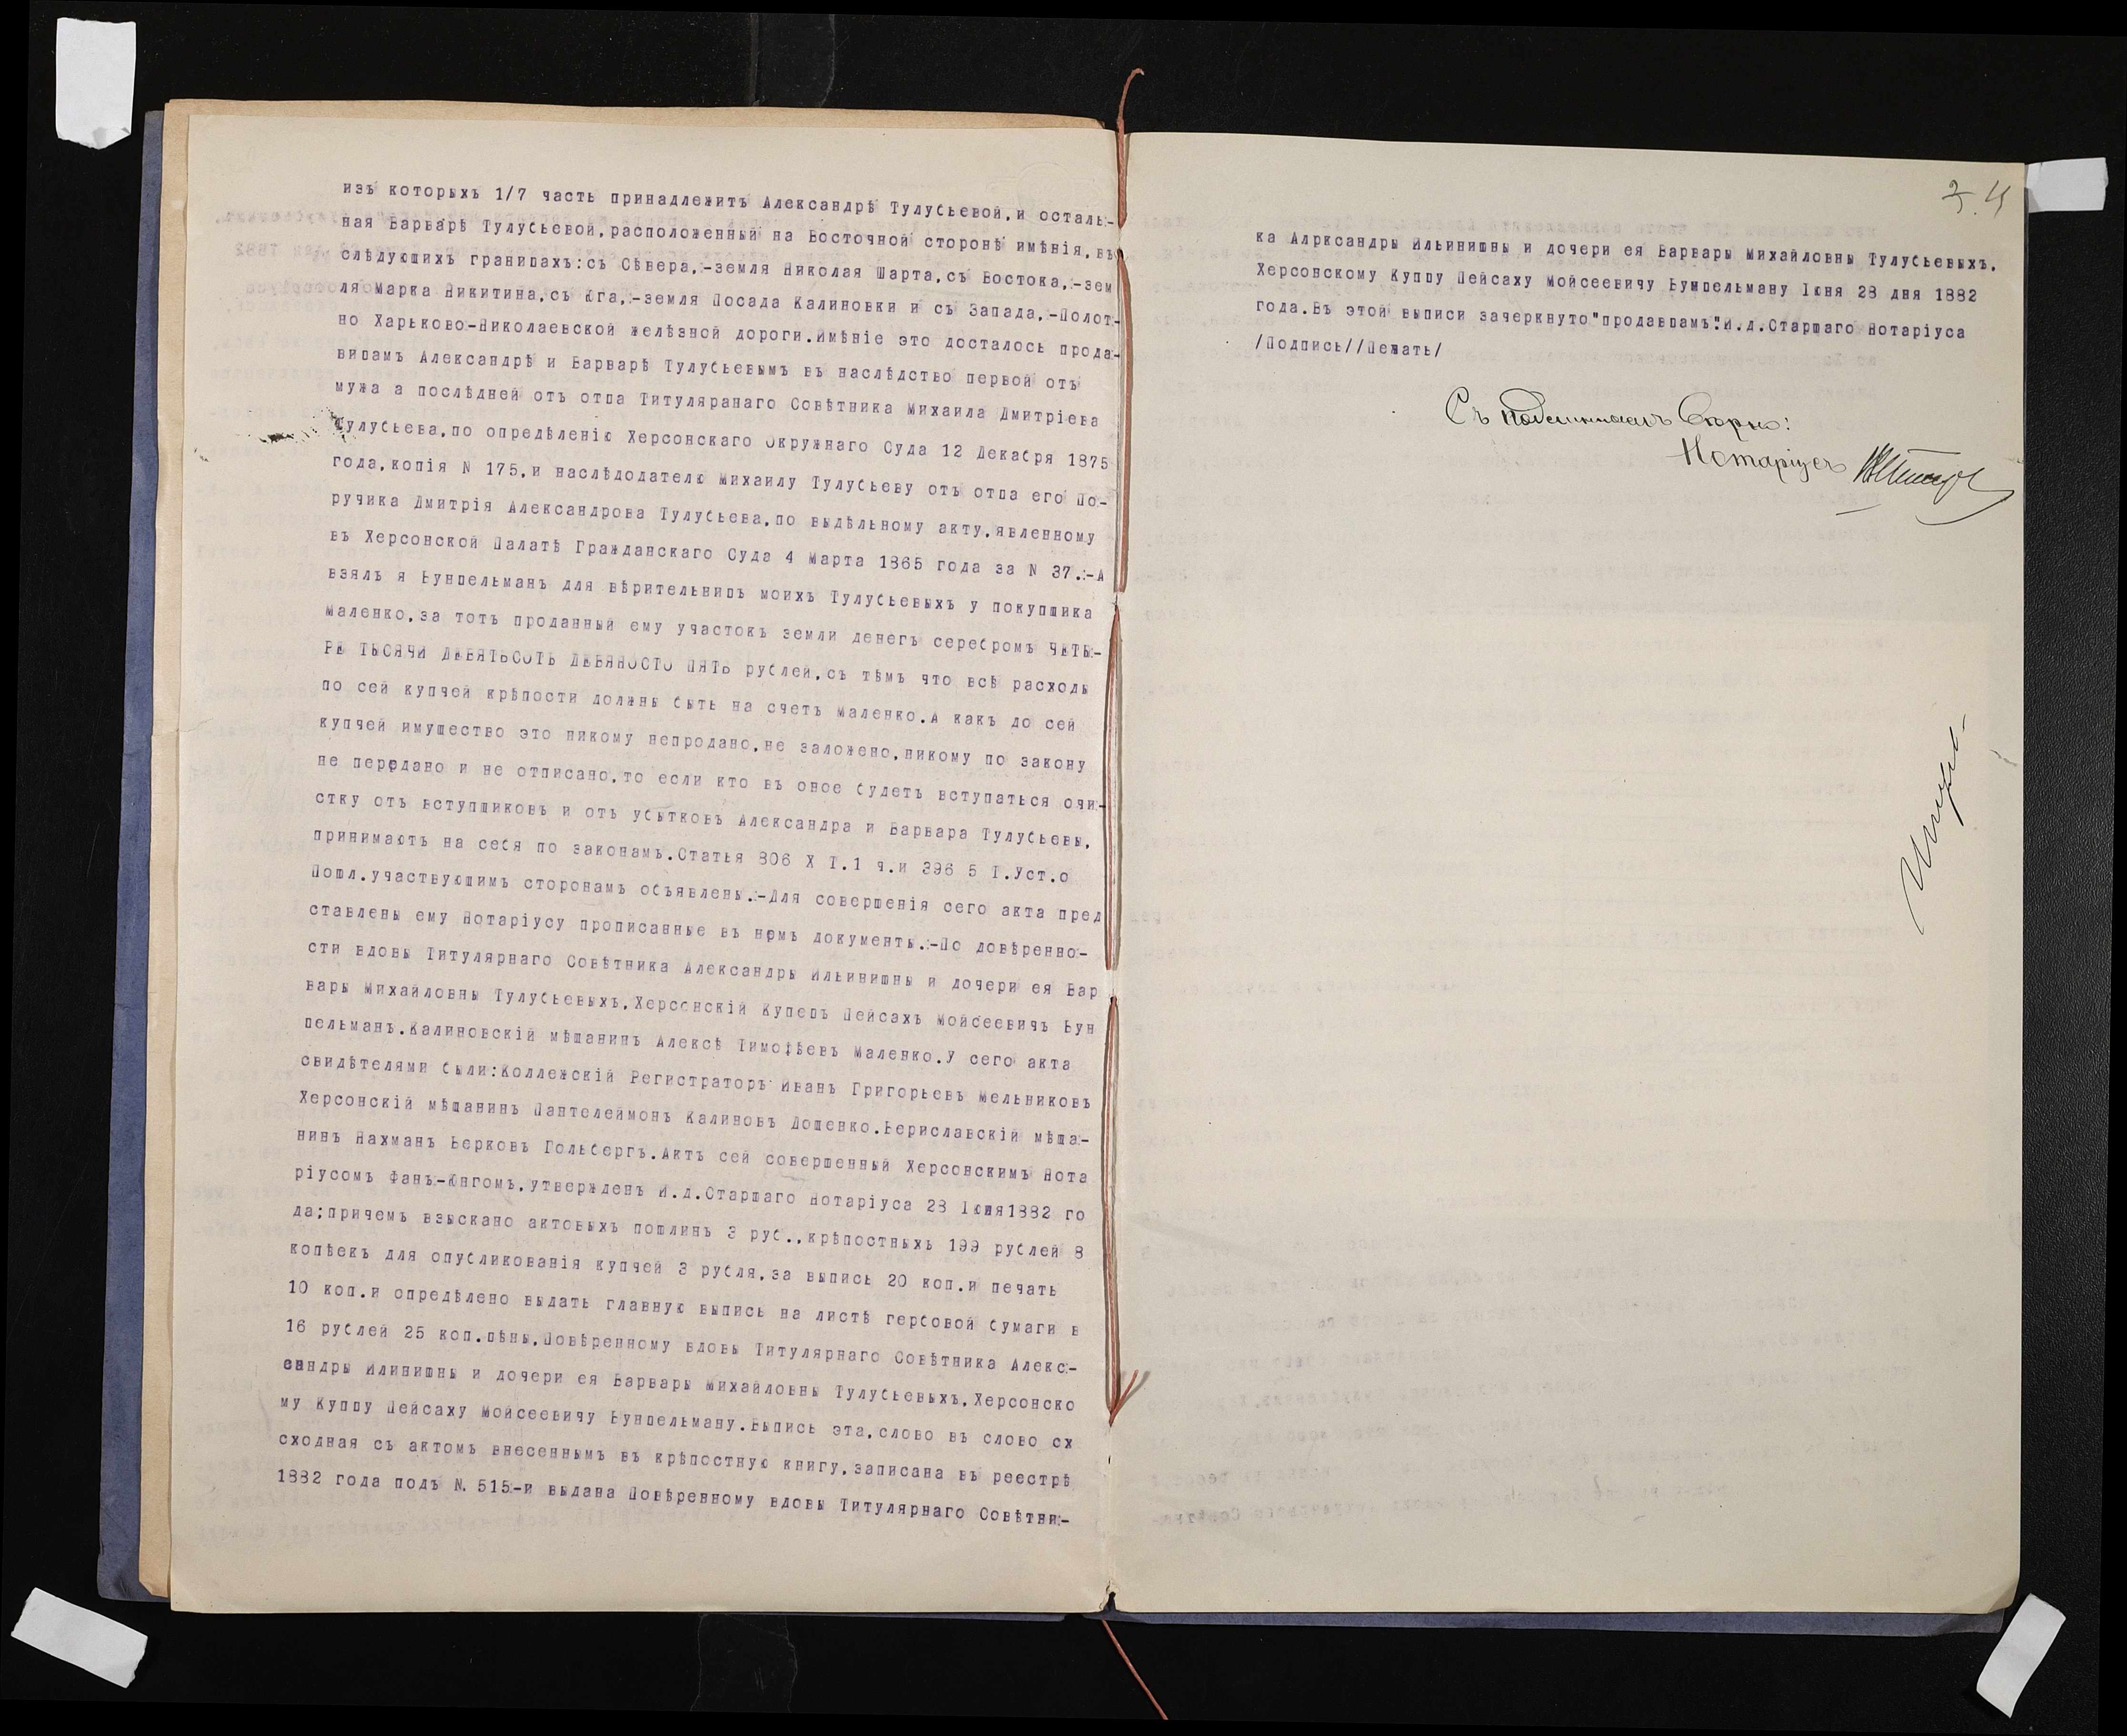 изъ которыхъ 1/7 часть принадлежитъ Александрѣ Тулубьевой,и осталь-
ная Варварѣ Тулубьевой,расположенный на Восточной сторонѣ имѣнія,въ
слѣдующихъ границахъ:съ Сѣвера,-земля Николая Шарта,съ Востока,-зем
ля Марка Никитина,съ Юга,-земля Посада Калиновки и съ Запада,-Полот-
но Харьково-Николаевской желѣзной дороги.Имѣніе это досталось прода-
вицамъ Александрѣ и Варварѣ Тулубьевымъ въ наслѣдство первой отъ
мужа а послѣдней отъ отца Титуляранаго Совѣтника Михаила Дмитріева
Тулубьева,по опредѣленію Херсонскаго Окружнаго Суда 12 Декабря 1875
года,копія N 175,и наслѣдодателю Михаилу Тулубьеву отъ отца его По-
ручика Дмитрія Александрова Тулубьева,по выдѣльному акту,явленному
въ Херсонской Палатѣ Гражданскаго Суда 4 Марта 1865 года за N 37.-А
взялъ я Бунцельманъ для вѣрительницъ моихъ Тулубьевыхъ у покупщика
Маленко,за тотъ проданный ему участокъ земли денегъ серебромъ ЧЕТЫ-
РЕ ТЫСЯЧИ ДЕВЯТЬСОТЪ ДЕВЯНОСТО ПЯТЬ рублей,съ тѣмъ что всѣ расходы
по сей купчей крѣпости должны быть на счетъ Маленко.А какъ до сей
купчей имущество это никому непродано,не заложено,никому по закону
не передано и не отписано,то если кто въ оное будетъ вступаться очи-
стку отъ вступщиковъ и отъ убытковъ Александра и Варвара Тулубьевы,
принимаютъ на себя по законамъ.Статья 806 X Т.1 ч.и 396 5 Т.Уст.о
Пошл.участвующимъ сторонамъ объявлены.-Для совершенія сего акта пред
ставлены ему Нотаріусу прописанные въ немъ документы.-По довѣренно-
сти вдовы Титулярнаго Совѣтника Александры Ильинишны и дочери ея Вар
вары Михайловны Тулубьевыхъ,Херсонскій Купецъ Пейсахъ Мойсеевичъ Бун
цельманъ.Калиновскій мѣщанинъ Алексѣ Тимофѣевъ Маленко.У сего акта
свидѣтелями были:Коллежскій Регистраторъ Иванъ Григорьевъ Мельниковъ
Херсонскій мѣщанинъ Пантелеймонъ Калиновъ Доценко.Бериславскій мѣща-
нинъ Нахманъ Берковъ Гольбергъ.Актъ сей совершенный Херсонскимъ Нота
ріусомъ Фанъ-Юнгомъ,утвержденъ И.д.Старшаго Нотаріуса 28 Іюня1882 го
да;причемъ взыскано актовыхъ пошлинъ 3 руб.,крѣпостныхъ 199 рублей 8
копѣекъ для опубликованія купчей 3 рубля,за выпись 20 коп.и печать
10 коп.и опредѣлено выдать главную выпись на листѣ гербовой бумаги в
16 рублей 25 коп.цѣны,Повѣренному вдовы Титулярнаго Совѣтника Алекс-
андры Илинишны и дочери ея Варвары Михайловны Тулубьевыхъ,Херсонско
му Купцу Пейсаху Мойсеевичу Бунцельману.Выпись эта,слово въ слово сх
сходная съ актомъ внесеннымъ въ крѣпостную книгу,записана въ реестрѣ
1882 года подъ N. 515-и выдана Повѣренному вдовы Титулярнаго Совѣтни-
ка Алрксандры Ильинишны и дочери ея Варвары Михайловны Тулубьевыхъ,
Херсонскому Купцу Пейсаху Мойсеевичу Бунцельману Іюня 28 дня 1882
года.Въ этой выписи зачеркнуто"продавцамъ".И.д.Старшаго Нотаріуса
/Подпись//Печать/
Съ подлиннымъ вѣрно:
Нотаріусъ